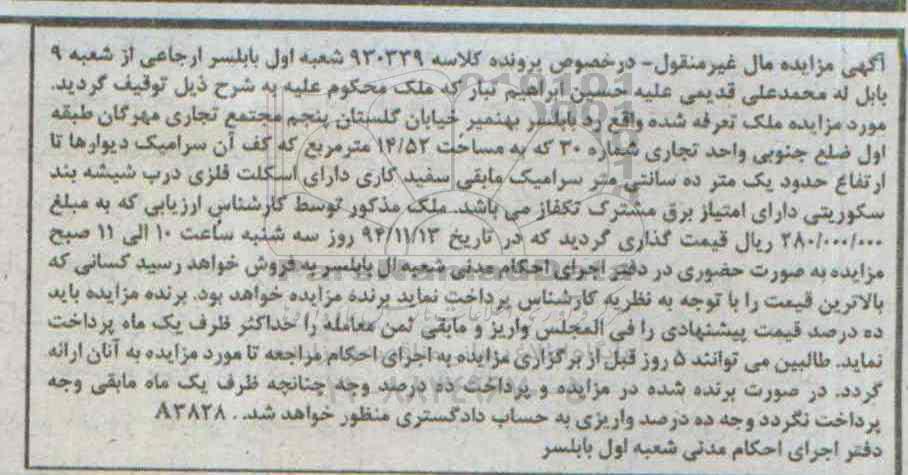 آگهی مزایده مال غیرمنقول- درخصوص پرونده کلاسه ۹۳۰۳۳۹ شعبه اول بابلسر ارجاعی از شعبه ۹
بابل له محمدعلی قدیمی علیه حسین ابراهیم تبار که ملک محکوم علیه به شرح ذیل توقیف گردید.
مورد مزایده ملک تعرفه شده واقع رد بابلسر بهنمیر خیابان گلستان پنجم مجتمع تجاری مهرگان طبقه
اول ضلع جنوبی واحد تجاری شماره ۳۰ که به مساحت ۱۴/۵۲ مترمربع که کف آن سرامیک دیوارها تا
ارتفاع حدود یک متر ده سانتی متر سرامیک مابقی سفید کاری دارای اسکلت فلزی درب شیشه بند
سکوریتی دارای امتیاز برق مشترک تکفاز می باشد. ملک مذکور توسط کارشناس ارزیابی که به مبلغ
۲۸۰/۰۰۰/۰۰۰ ریال قیمت گذاری گردید که در تاریخ ۹۴/۱۱/۱۳ روز سه شنبه ساعت ۱۰ الی ۱۱ صبح
مزایده به صورت حضوری در دفتر اجرای احکام مدنی شعبه ال بابلسر به فروش خواهد رسید کسانی که
بالاترین قیمت را با توجه به نظریه کارشناس پرداخت نماید برنده مزایده خواهد بود. برنده مزایده باید
ده درصد قیمت پیشنهادی را فی المجلس واریز و مابقی ثمن معامله را حداکثر ظرف یک ماه پرداخت
نماید. طالبین می توانند ۵ روز قبل از برگزاری مزایده به اجرای احکام مراجعه تا مورد مزایده به آنان ارائه
گردد. در صورت برنده شده در مزایده و پرداخت ده درصد وجه چنانچه ظرف یک ماه مابقی وجه
پرداخت نگردد وجه ده درصد واریزی به حساب دادگستری منظور خواهد شد. ۸۳۸۲۸
دفتر اجرای احکام مدنی شعبه اول بابلسر